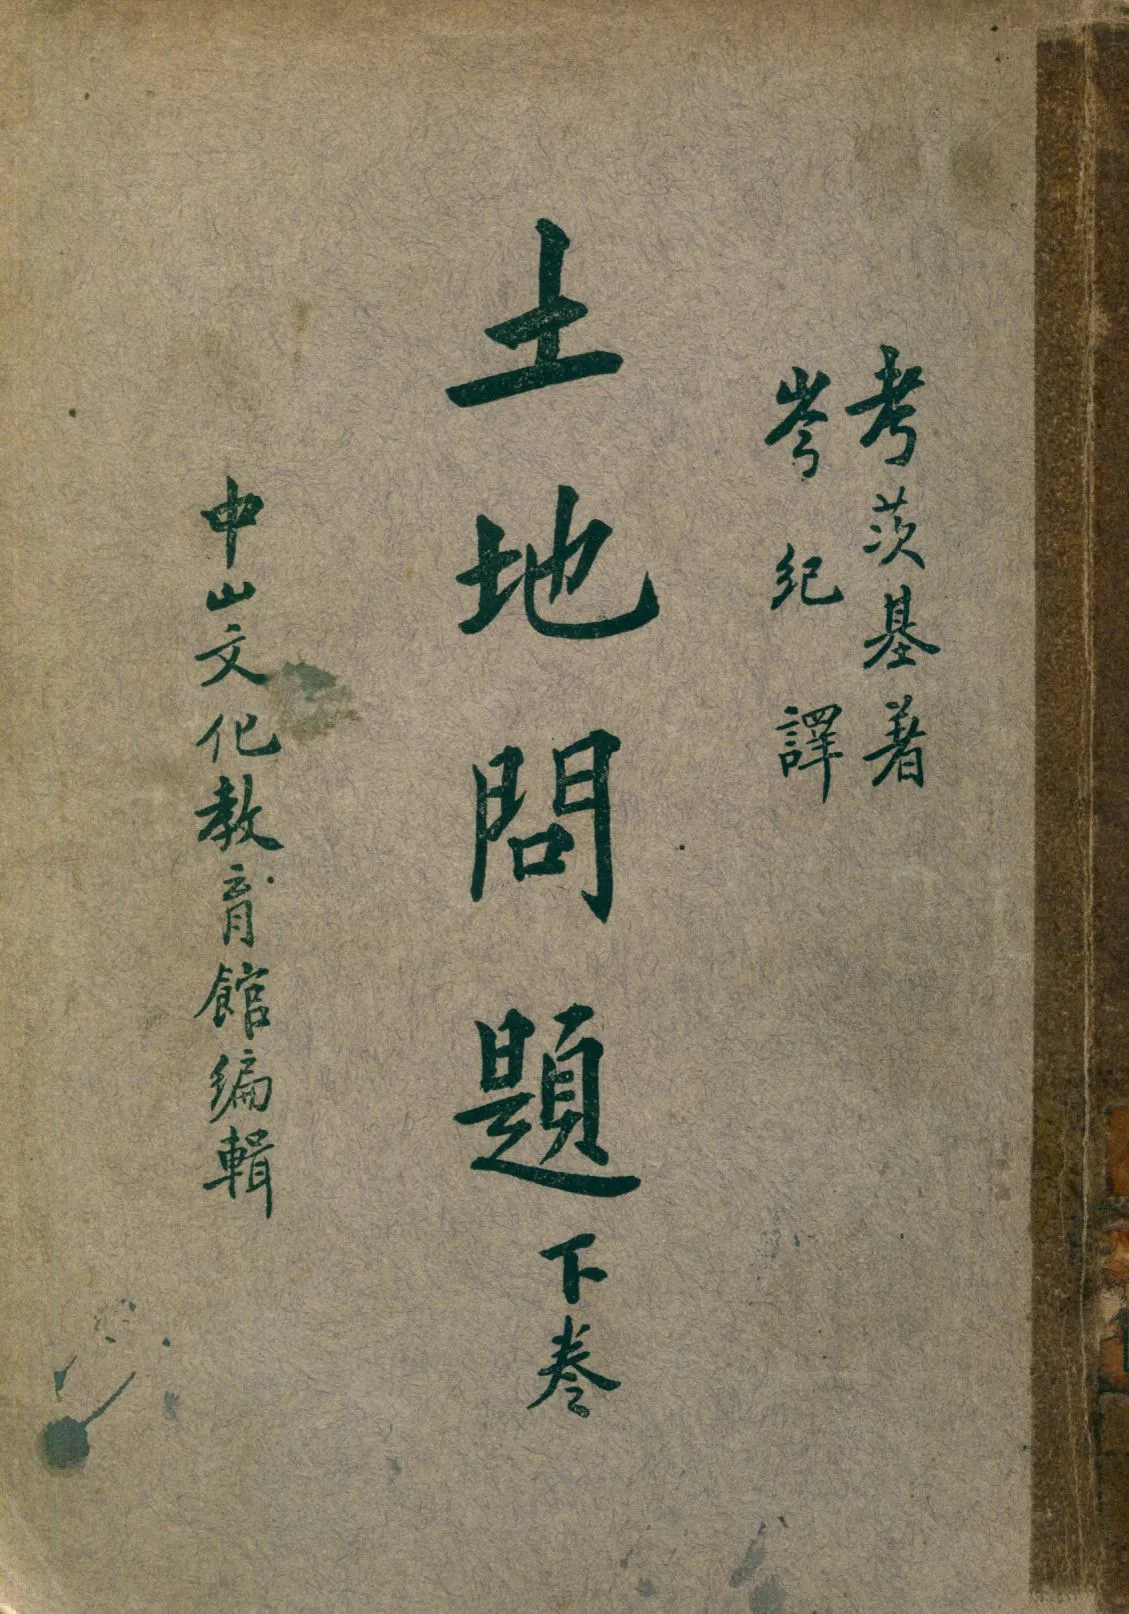 考茨基著
岑紀譯
土地問題
下卷
中山文化教育館編輯